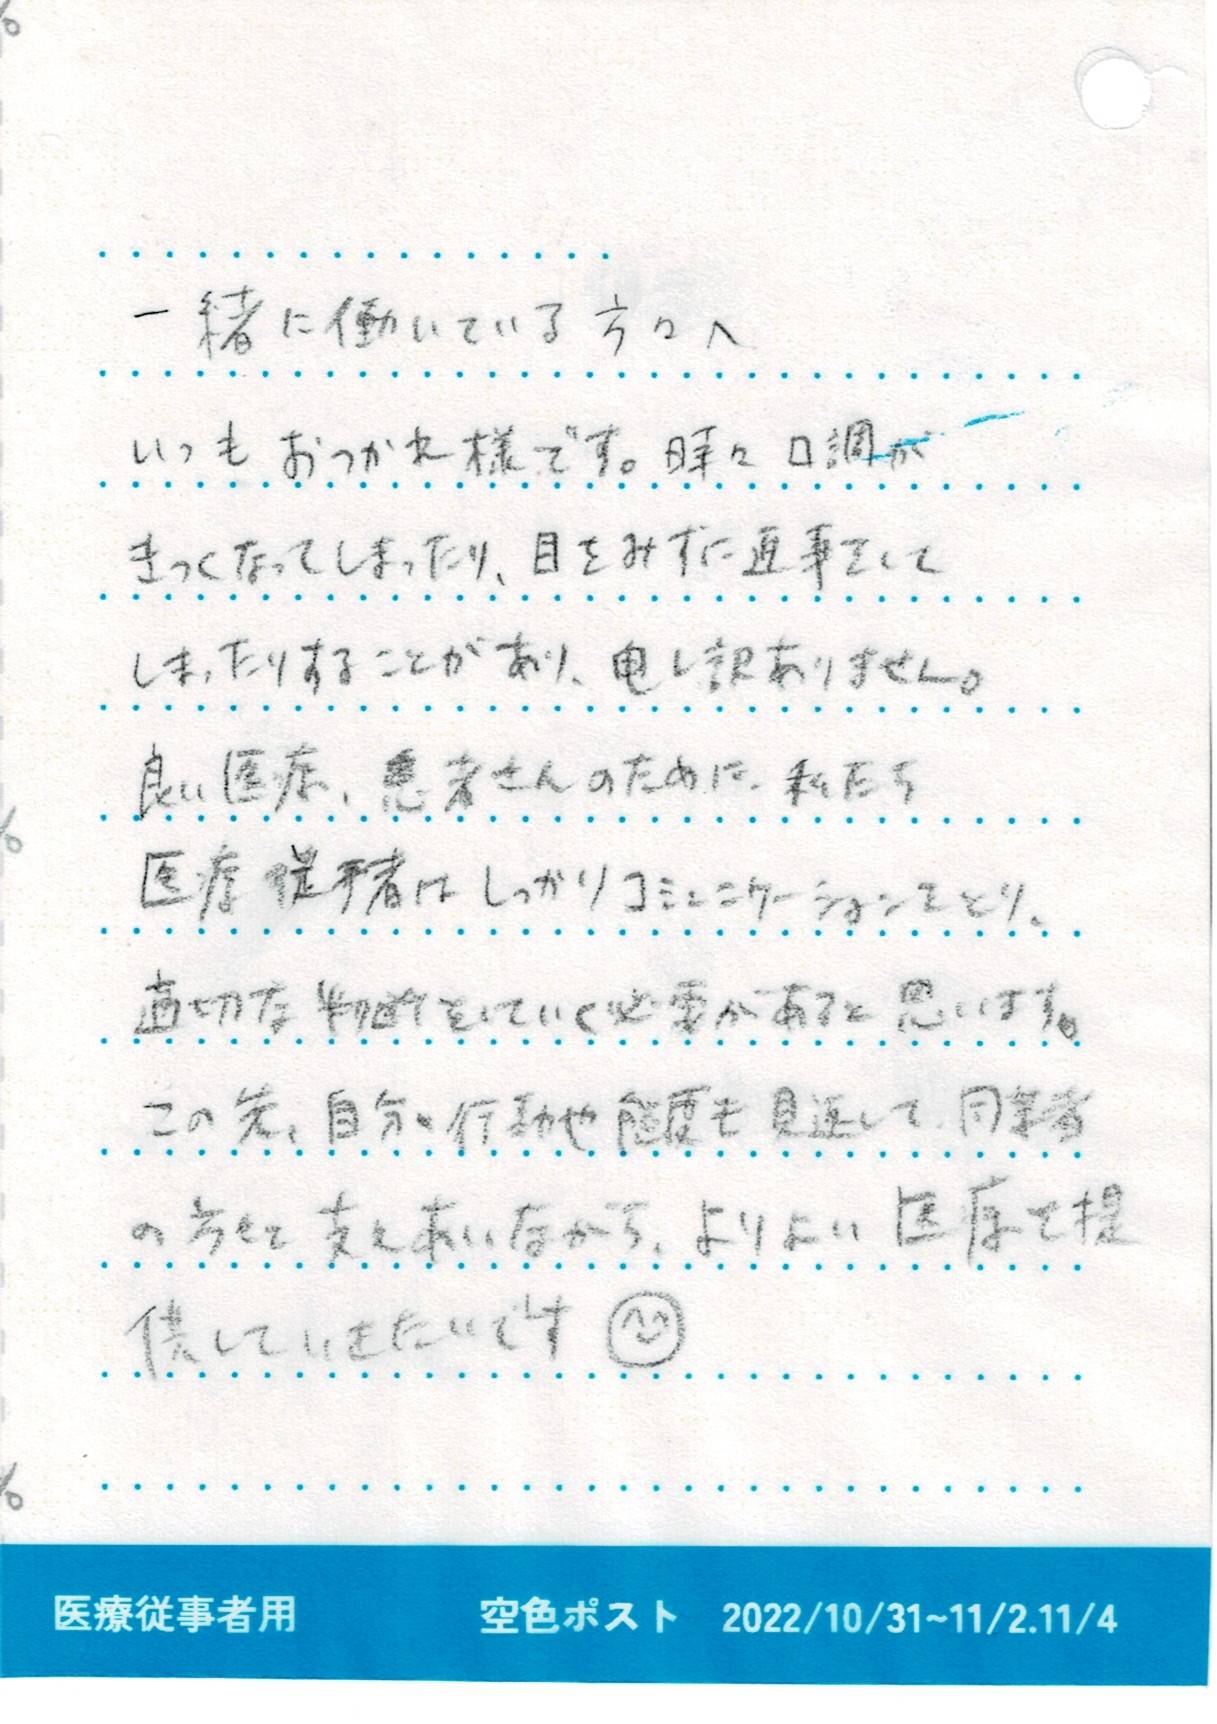 一緒に働いている方々へ
いつもおつかれ様です。時々口調が
きつくなってしまったり、目をみずに返事をして
しまったりすることがあり、申し訳ありません。
良い医療、患者さんのために、私たち
医療従事者はしっかりコミュニケーションをとり、
適切な判断をしていく必要があると思います。
この先、自分の行動や態度も見返して、同業者
の方々と支えあいながら、よりよい医療を提
供していきたいです
医療従事者用 空色ポスト 2022/10/31~11/2.11/4